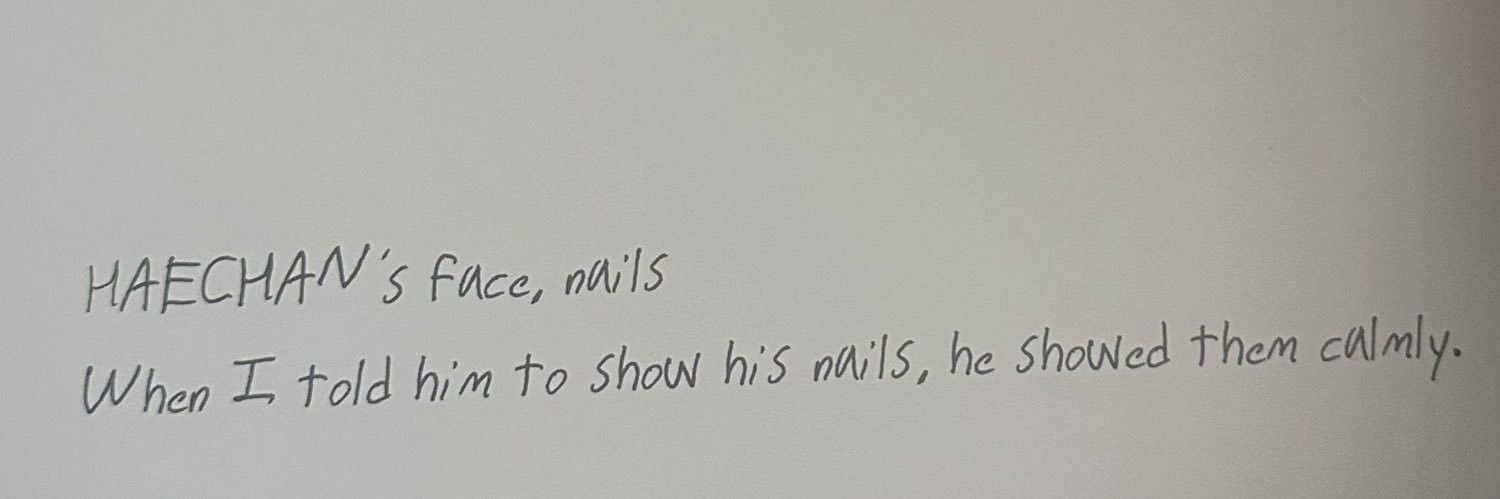 HAECHAN's face, nails
When I told him to show his nails, he showed them calmly.